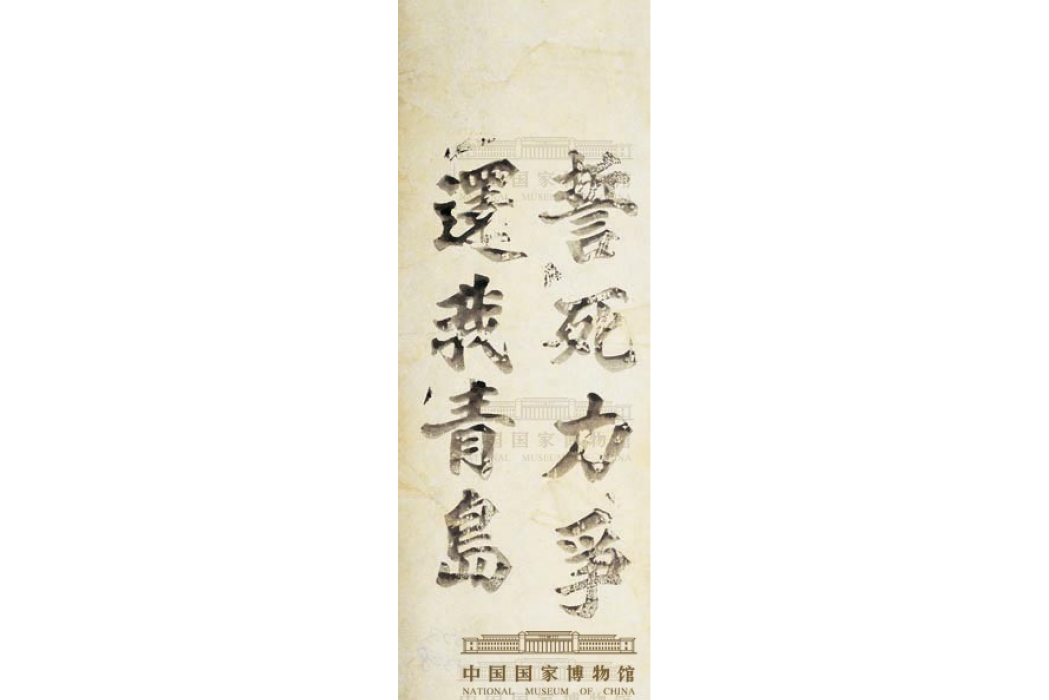 誓死力爭
還我青島
中国国家博物馆
NATIONAL MUSEUM OF CHINA